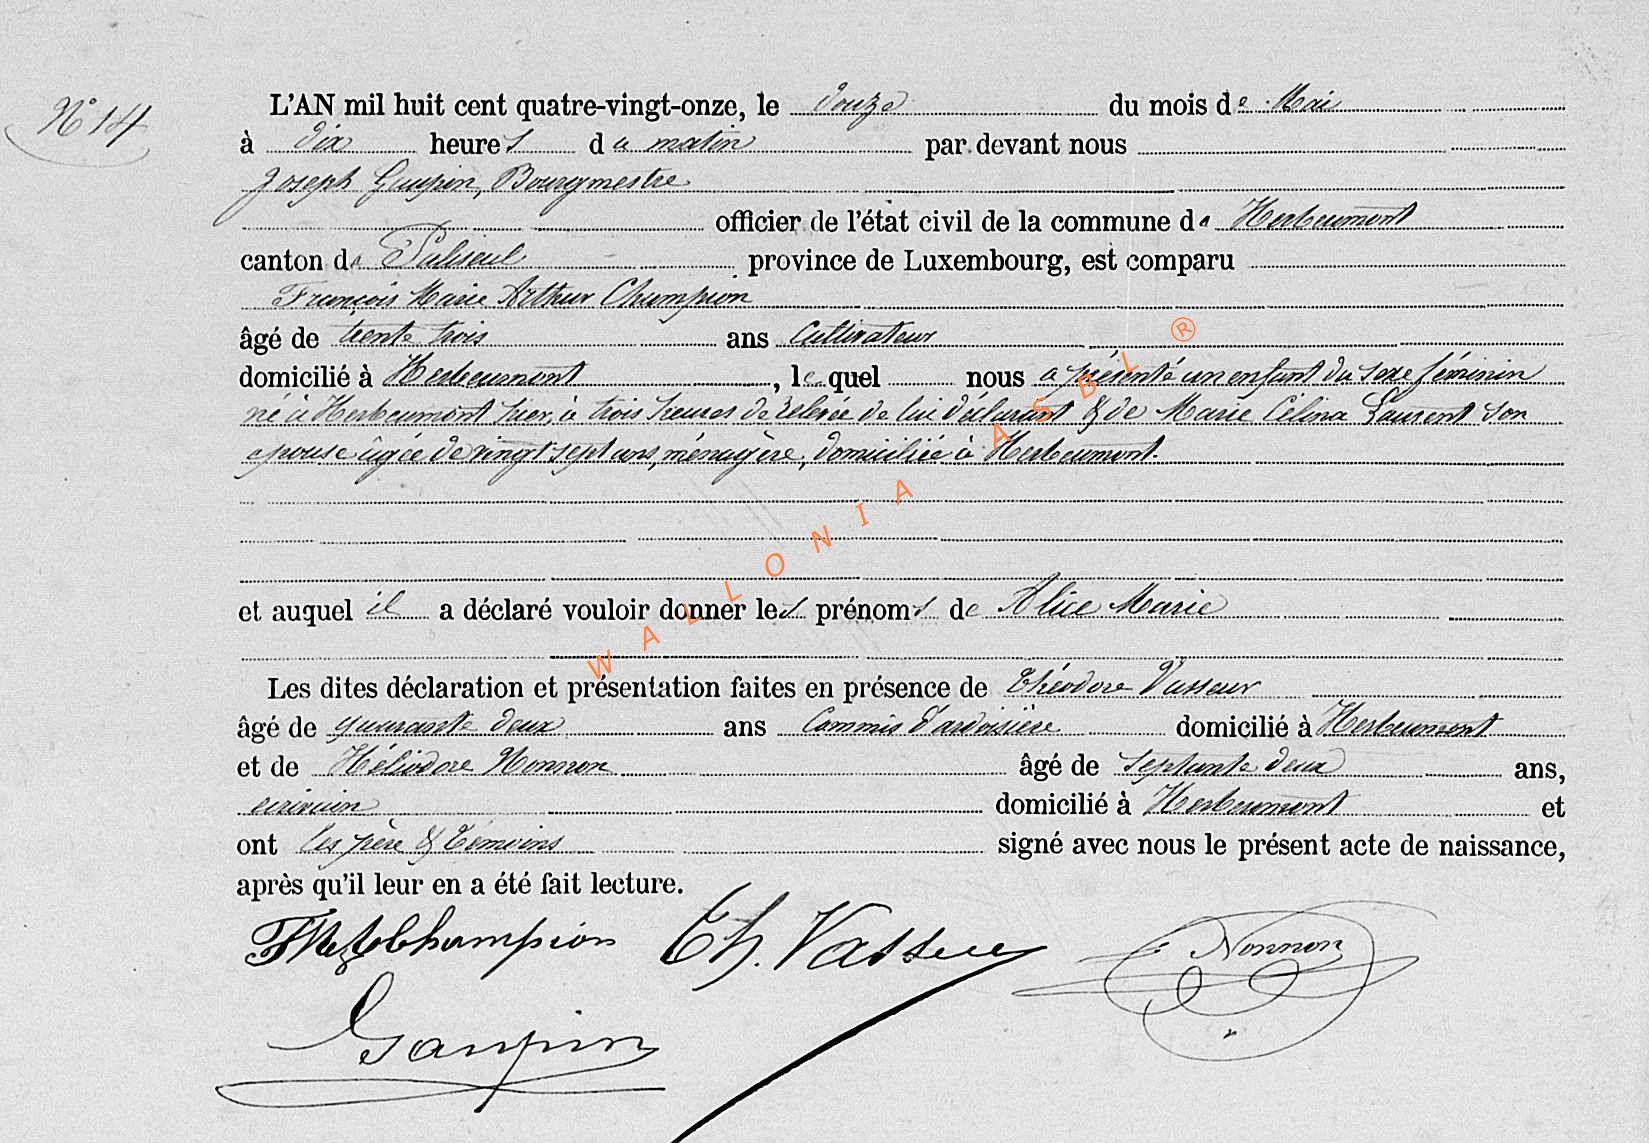 N° 14
L'AN mil huit cent quatre-vingt-onze, le douze du mois de Mai
à dix heures du matin par devant nous
Joseph Gaupin, Bourgmestre
officier de l'état civil de la commune de Herbeumont
canton de Paliseul province de Luxembourg, est comparu
François Marie Arthur Champion
âgé de trente trois ans Cultivateur
domicilié à Herbeumont, lequel nous a présenté un enfant du sexe féminin
né à Herbeumont hier, à trois heures de relevée de lui déclarant & de Marie Célina Laurent son
epouse âgée de vingt sept ans, ménagère, domiciliée à Herbeumont.
et auquel il a déclaré vouloir donner les prénoms de Alice Marie
Les dites déclaration et présentation faites en présence de Théodore Vasseur
âgé de quarante deux ans Commis d'ardoisière domicilié à Herbeumont
et de Héliodore Nonnon âgé de septante deux ans,
ecrivain domicilié à Herbeumont et
ont les père & témoins signé avec nous le présent acte de naissance,
après qu'il leur en a été fait lecture.
Champion Th. Vasseur Nonnon
Gaupin
WALLONIA ASBL ®